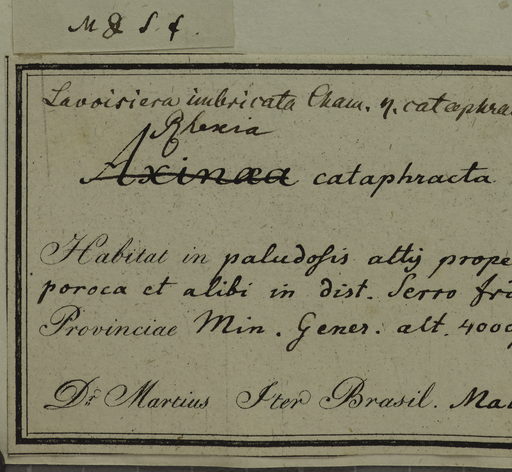 M & S f.
Lavoisiera imbricata Cham. η. cataphrac
Rhexia
Axinæa cataphracta
Habitat in paludosis altis prope
poroca et alibi in dist. Serro fri
Provinciae Min. Gener. alt. 4000
Dr. Martius Iter Brasil. Mai